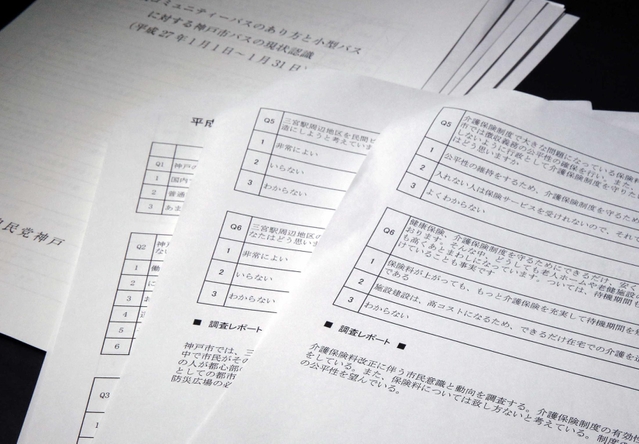 コミュニティーバスのあり方と小型バス
に対する神戸市バスの現状認識
(平成27年1月1日～1月31日)
民党神戸
平成
Q1 神戸の
1 国内
2 普通
3 あま
Q2 神戸
な
1 働
2
3
4
5
6
Q3
Q5 三宮駅周辺地区を民間
造にしようと考えています
1 非常によい
2 いらない
3 わからない
Q6 三宮駅周辺地区の
なたはどう思います
1 非常によい
2 いらない
3 わからない
■ 調査レポート
神戸市では、三
中で市民がその
の人が都心部の
としての都市
防災広場の必
Q5 介護保険制度で大きな問題になっている保険料
市では徴収義務の公平性の確保を行い、また、
しないように行政として介護保険制度を守りた
はどう思いますか
1 公平性の維持をするため、介護保険制度を守るため
2 入れない人は保険サービスを受けれないので、それ
3 よくわからない
Q6 健康保険、介護保険制度を守るためにできるだけ、安く
おります。そんな中、どうしても老人ホームや老健施設
も高くあまわしになっています。ついては、待機期間
けていることも事実です
1 保険料が上がっても、もっと介護保険を充実して待機期間を
である
2 施設建設は、高コストになるため、できるだけ在宅での介護を
3 わからない
■ 調査レポート ■
介護保険料改正に伴う市民意識と動向を調査する。介護保険制度の有効
をしている。また、保険料については致し方ないと考えている。制度
の公平性を望んでいる。